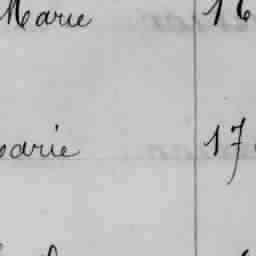 Marie 16
arie 17